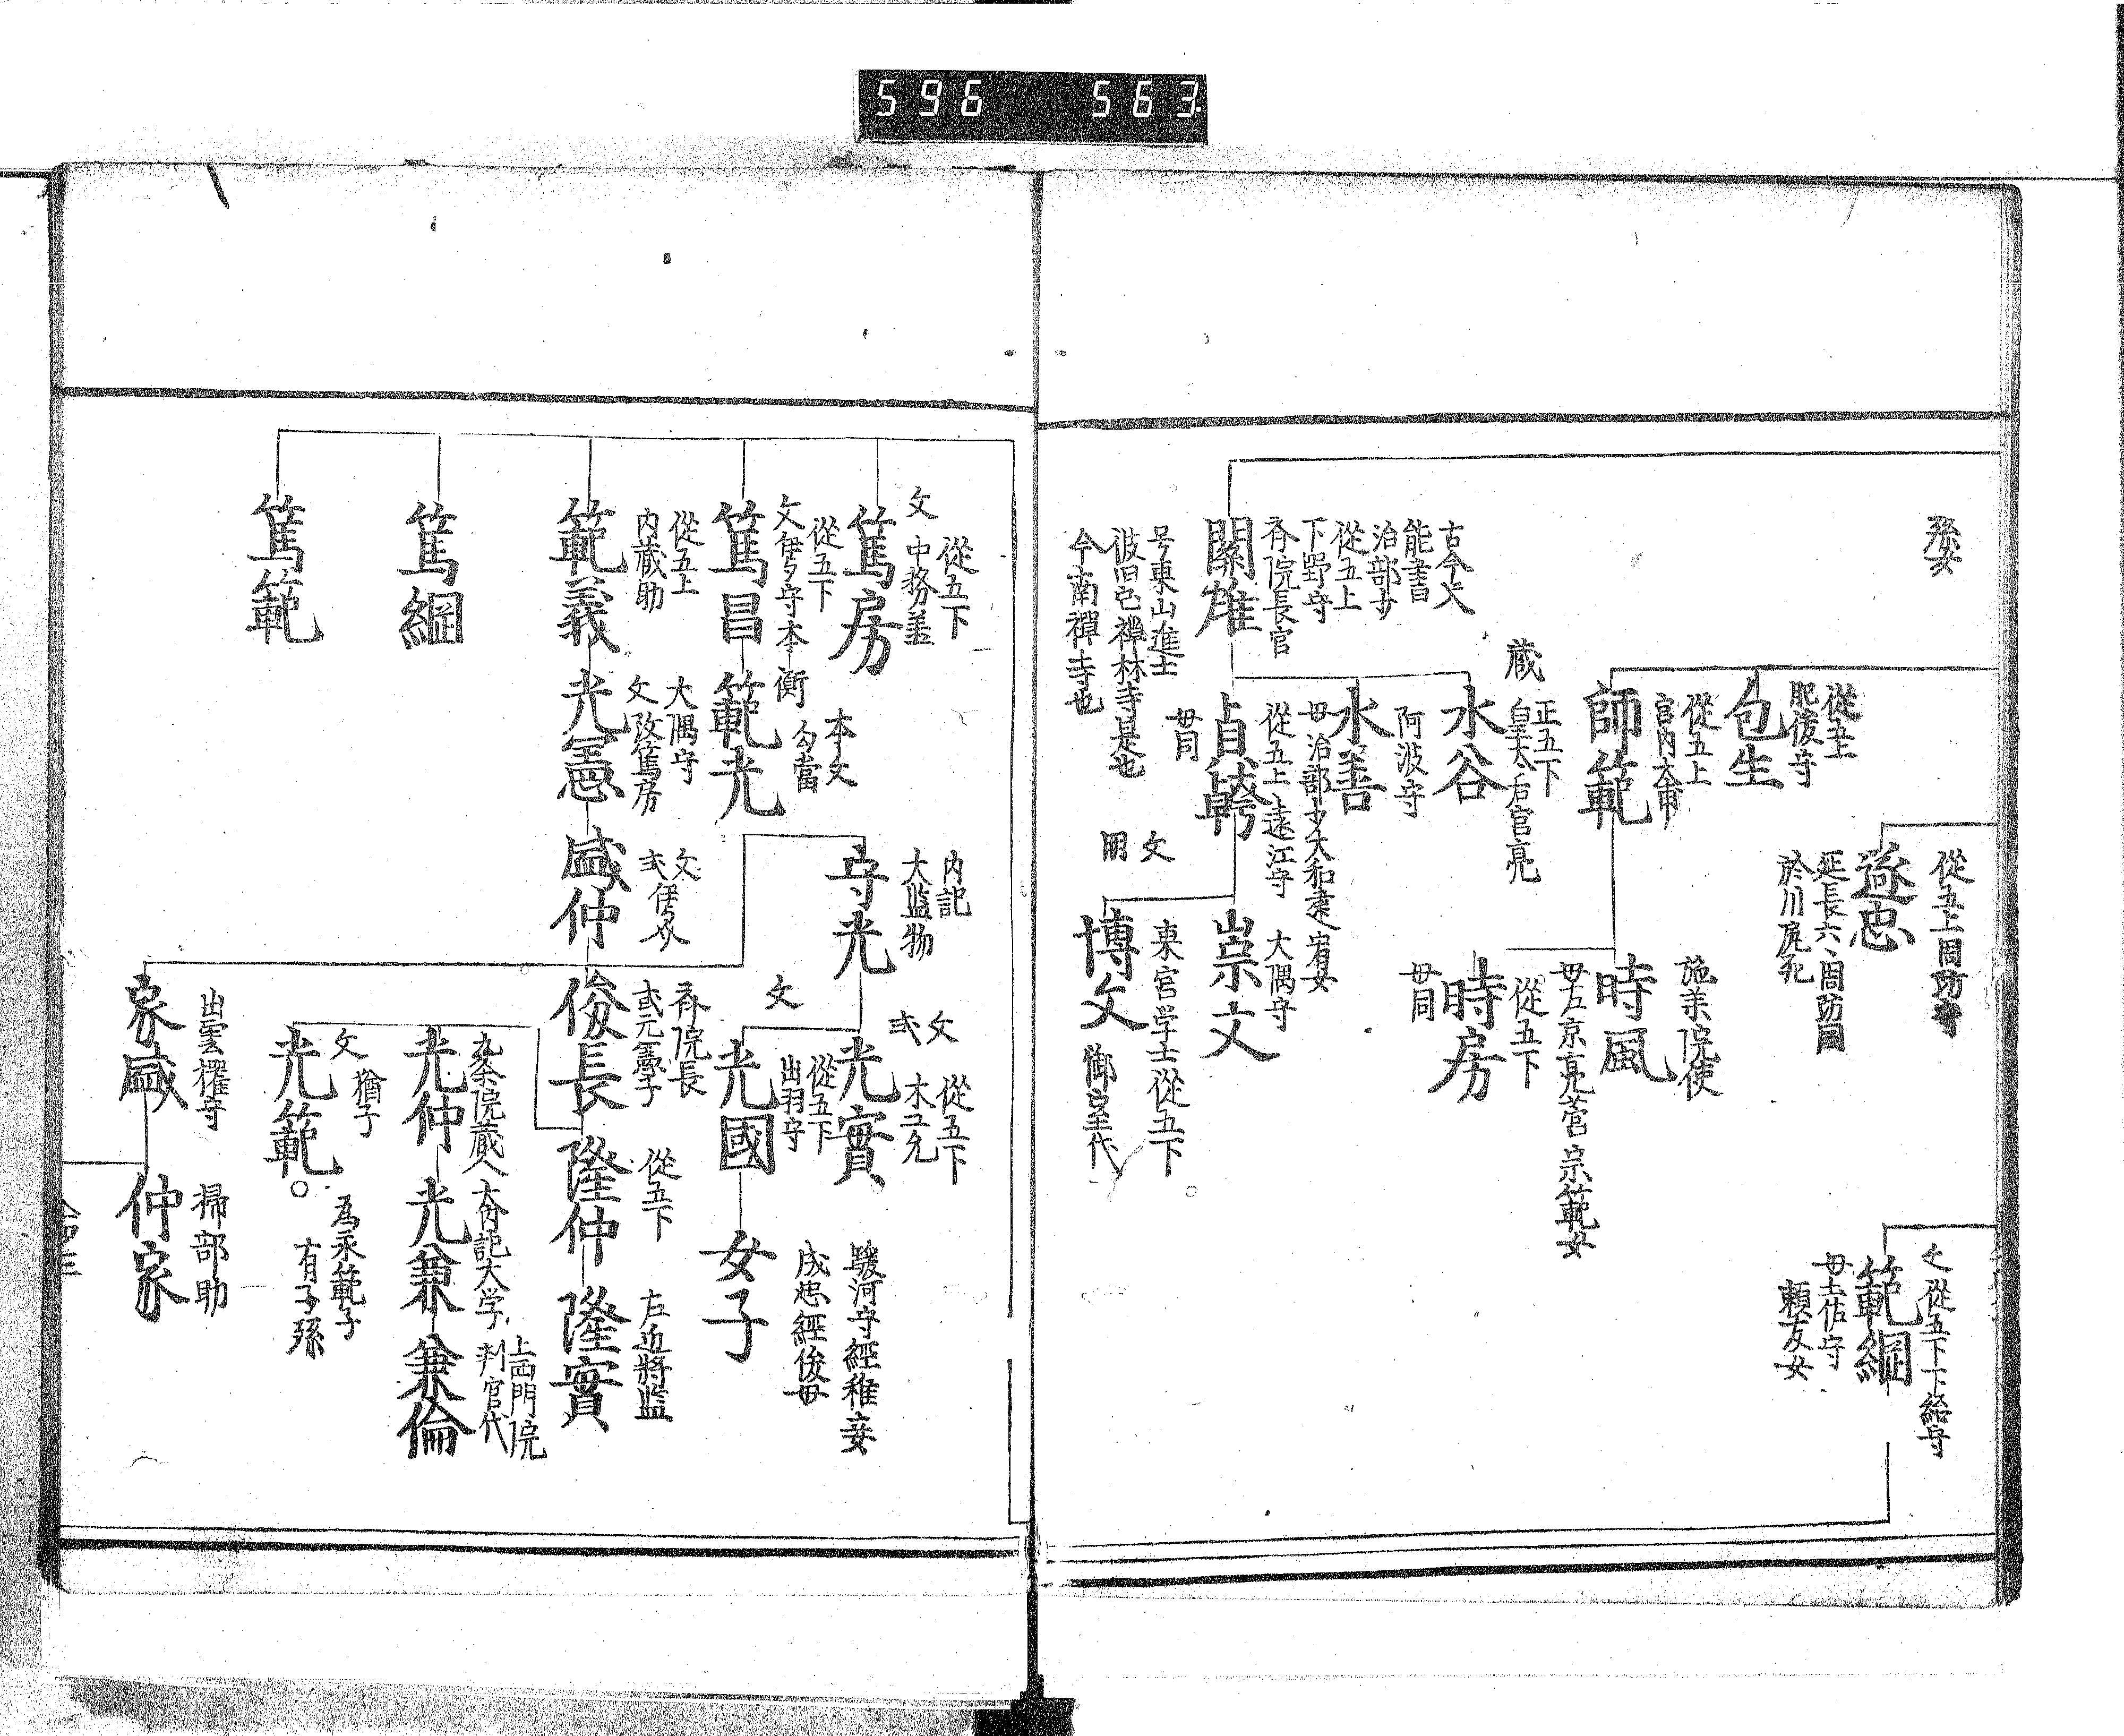 596 563
孫女
從五上周防守
遂忠
延長六、周防國
於川尻死
文 從五下 下総守
範綱
母土佐守
賴友女
從五上
肥後守
包生
從五上
宮内大甫
師範
施薬院使
時風
母左京亮菅宗範女
從五下
時房
母同
蔵
正五下
皇太后宮亮
水谷
阿波守
水善
古今大
能書
治部少
從五上
下野守
斉院長官
關雄
号東山進士
彼旧宅禅林寺是也
今南禪寺也
母治部少大和建宥女
從五上 遠江守
貞幹
母同
大隅守
崇文
文
用
東宮学士從五下
博文
從五下
文 中務丞
篤房
從五下
文 伊与守本衡
篤昌
本文
勾當
範光
内記
大監物
守光
文 從五下
木工允
光實
文
從五下
出羽守
光國
駿河守經稚妾
成忠經俊母
女子
從五上
内蔵助
範義
大隅守
文改篤房
光憲
文
盛仲
斉院長
或元憲子
俊長
從五下
隆仲
左近將監
隆實
篤綱
九条院蔵人
光仲
光兼
上西門院
判官代
兼倫
篤範
文 猶子
光範
為永範子
有子孫
出雲權守
家盛
掃部助
仲家